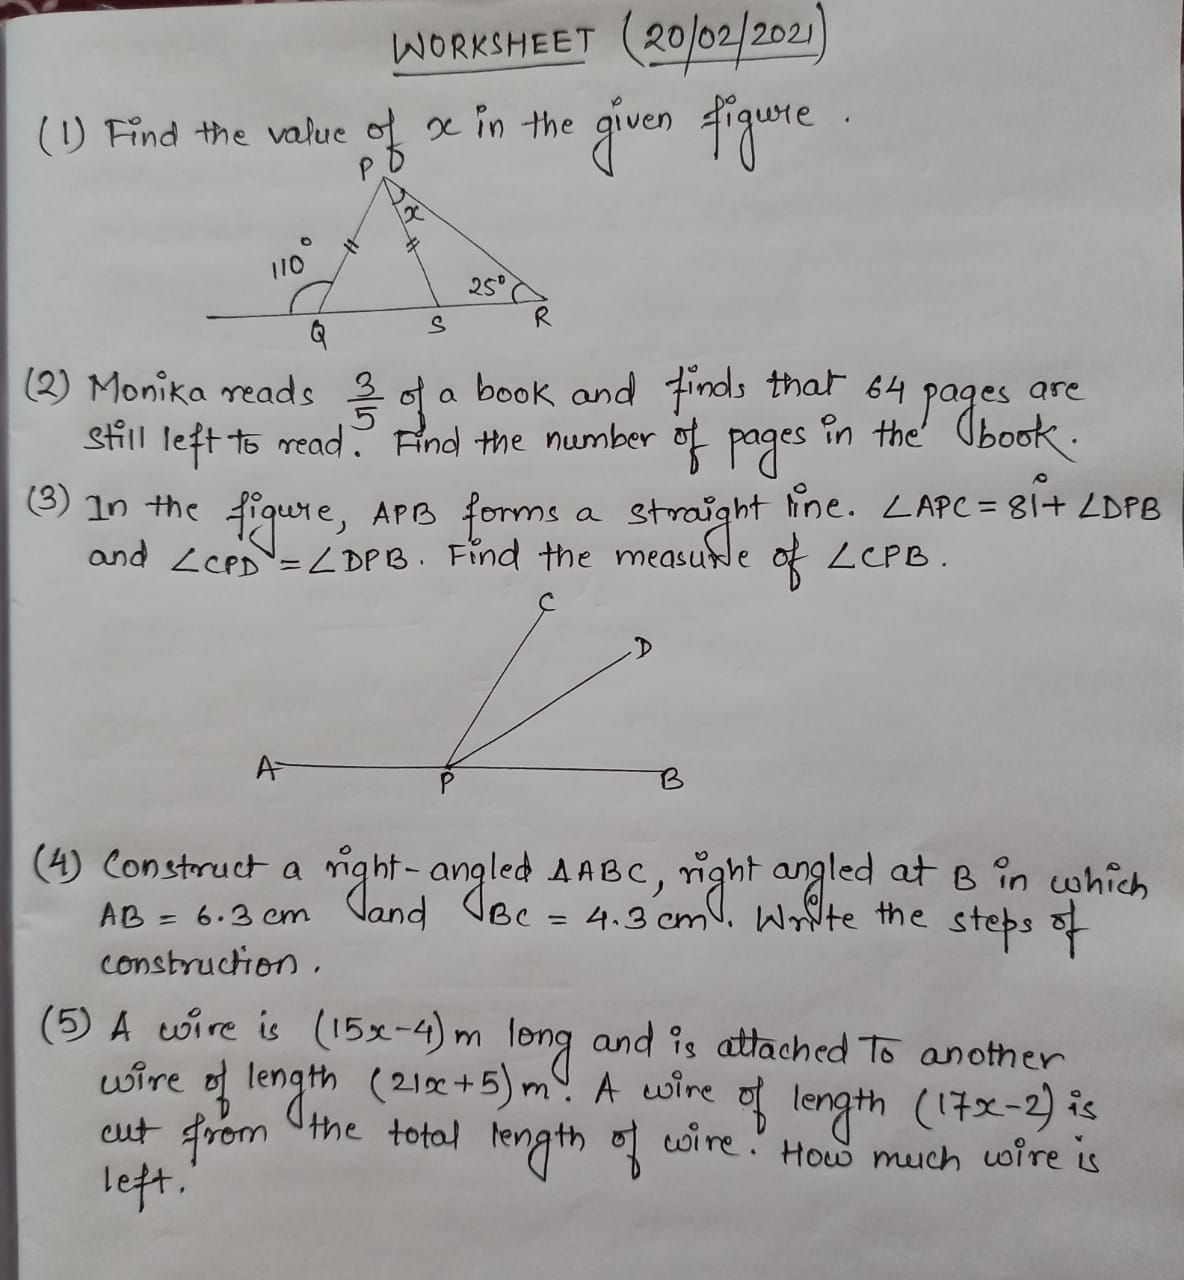 WORKSHEET (20/02/2021)
(1) Find the value of x in the given figure.
P
x
110°
25°
Q
S
R
(2) Monika reads 3/5 of a book and finds that 64 pages are
still left to read. Find the number of pages in the book.
(3) In the figure, APB forms a straight line. ∠APC = 81° + ∠DPB
and ∠CPD = ∠DPB. Find the measure of ∠CPB.
C
D
A
P
B
(4) Construct a right-angled ΔABC, right angled at B in which
AB = 6.3 cm and BC = 4.3 cm. Write the steps of
construction.
(5) A wire is (15x-4) m long and is attached to another
wire of length (21x+5) m. A wire of length (17x-2) is
cut from the total length of wire. How much wire is
left.